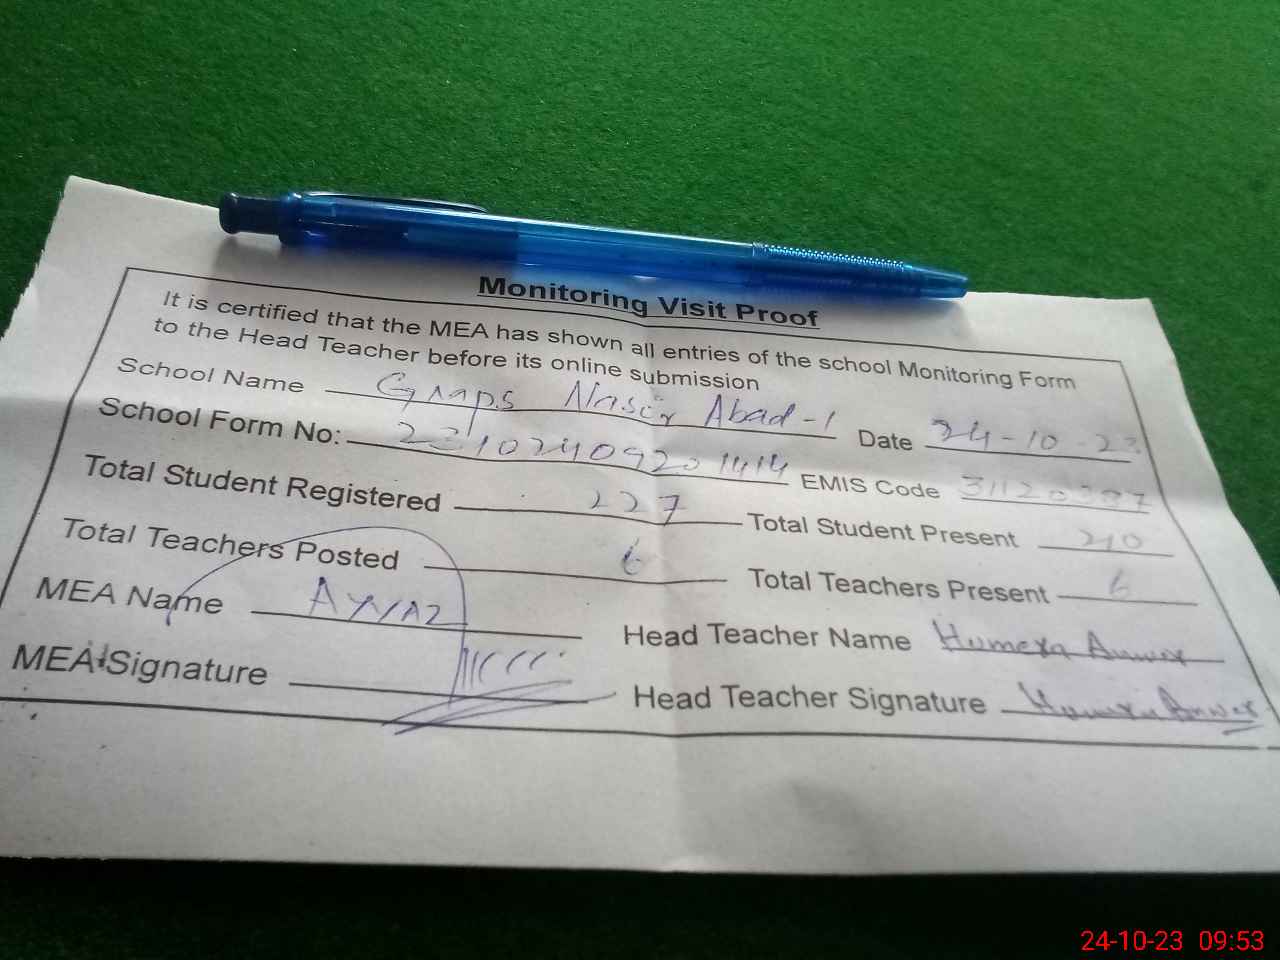 Monitoring Visit Proof
It is certified that the MEA has shown all entries of the school Monitoring Form
to the Head Teacher before its online submission
School Name Gmps Nasir Abad-1 Date 24-10-23
School Form No: 23102409201414 EMIS Code 31120387
Total Student Registered 227 Total Student Present 210
Total Teachers Posted 6 Total Teachers Present 6
MEA Name Ayyaz Head Teacher Name Humera Anwar
MEA Signature Head Teacher Signature Humera Anwar
24-10-23 09:53